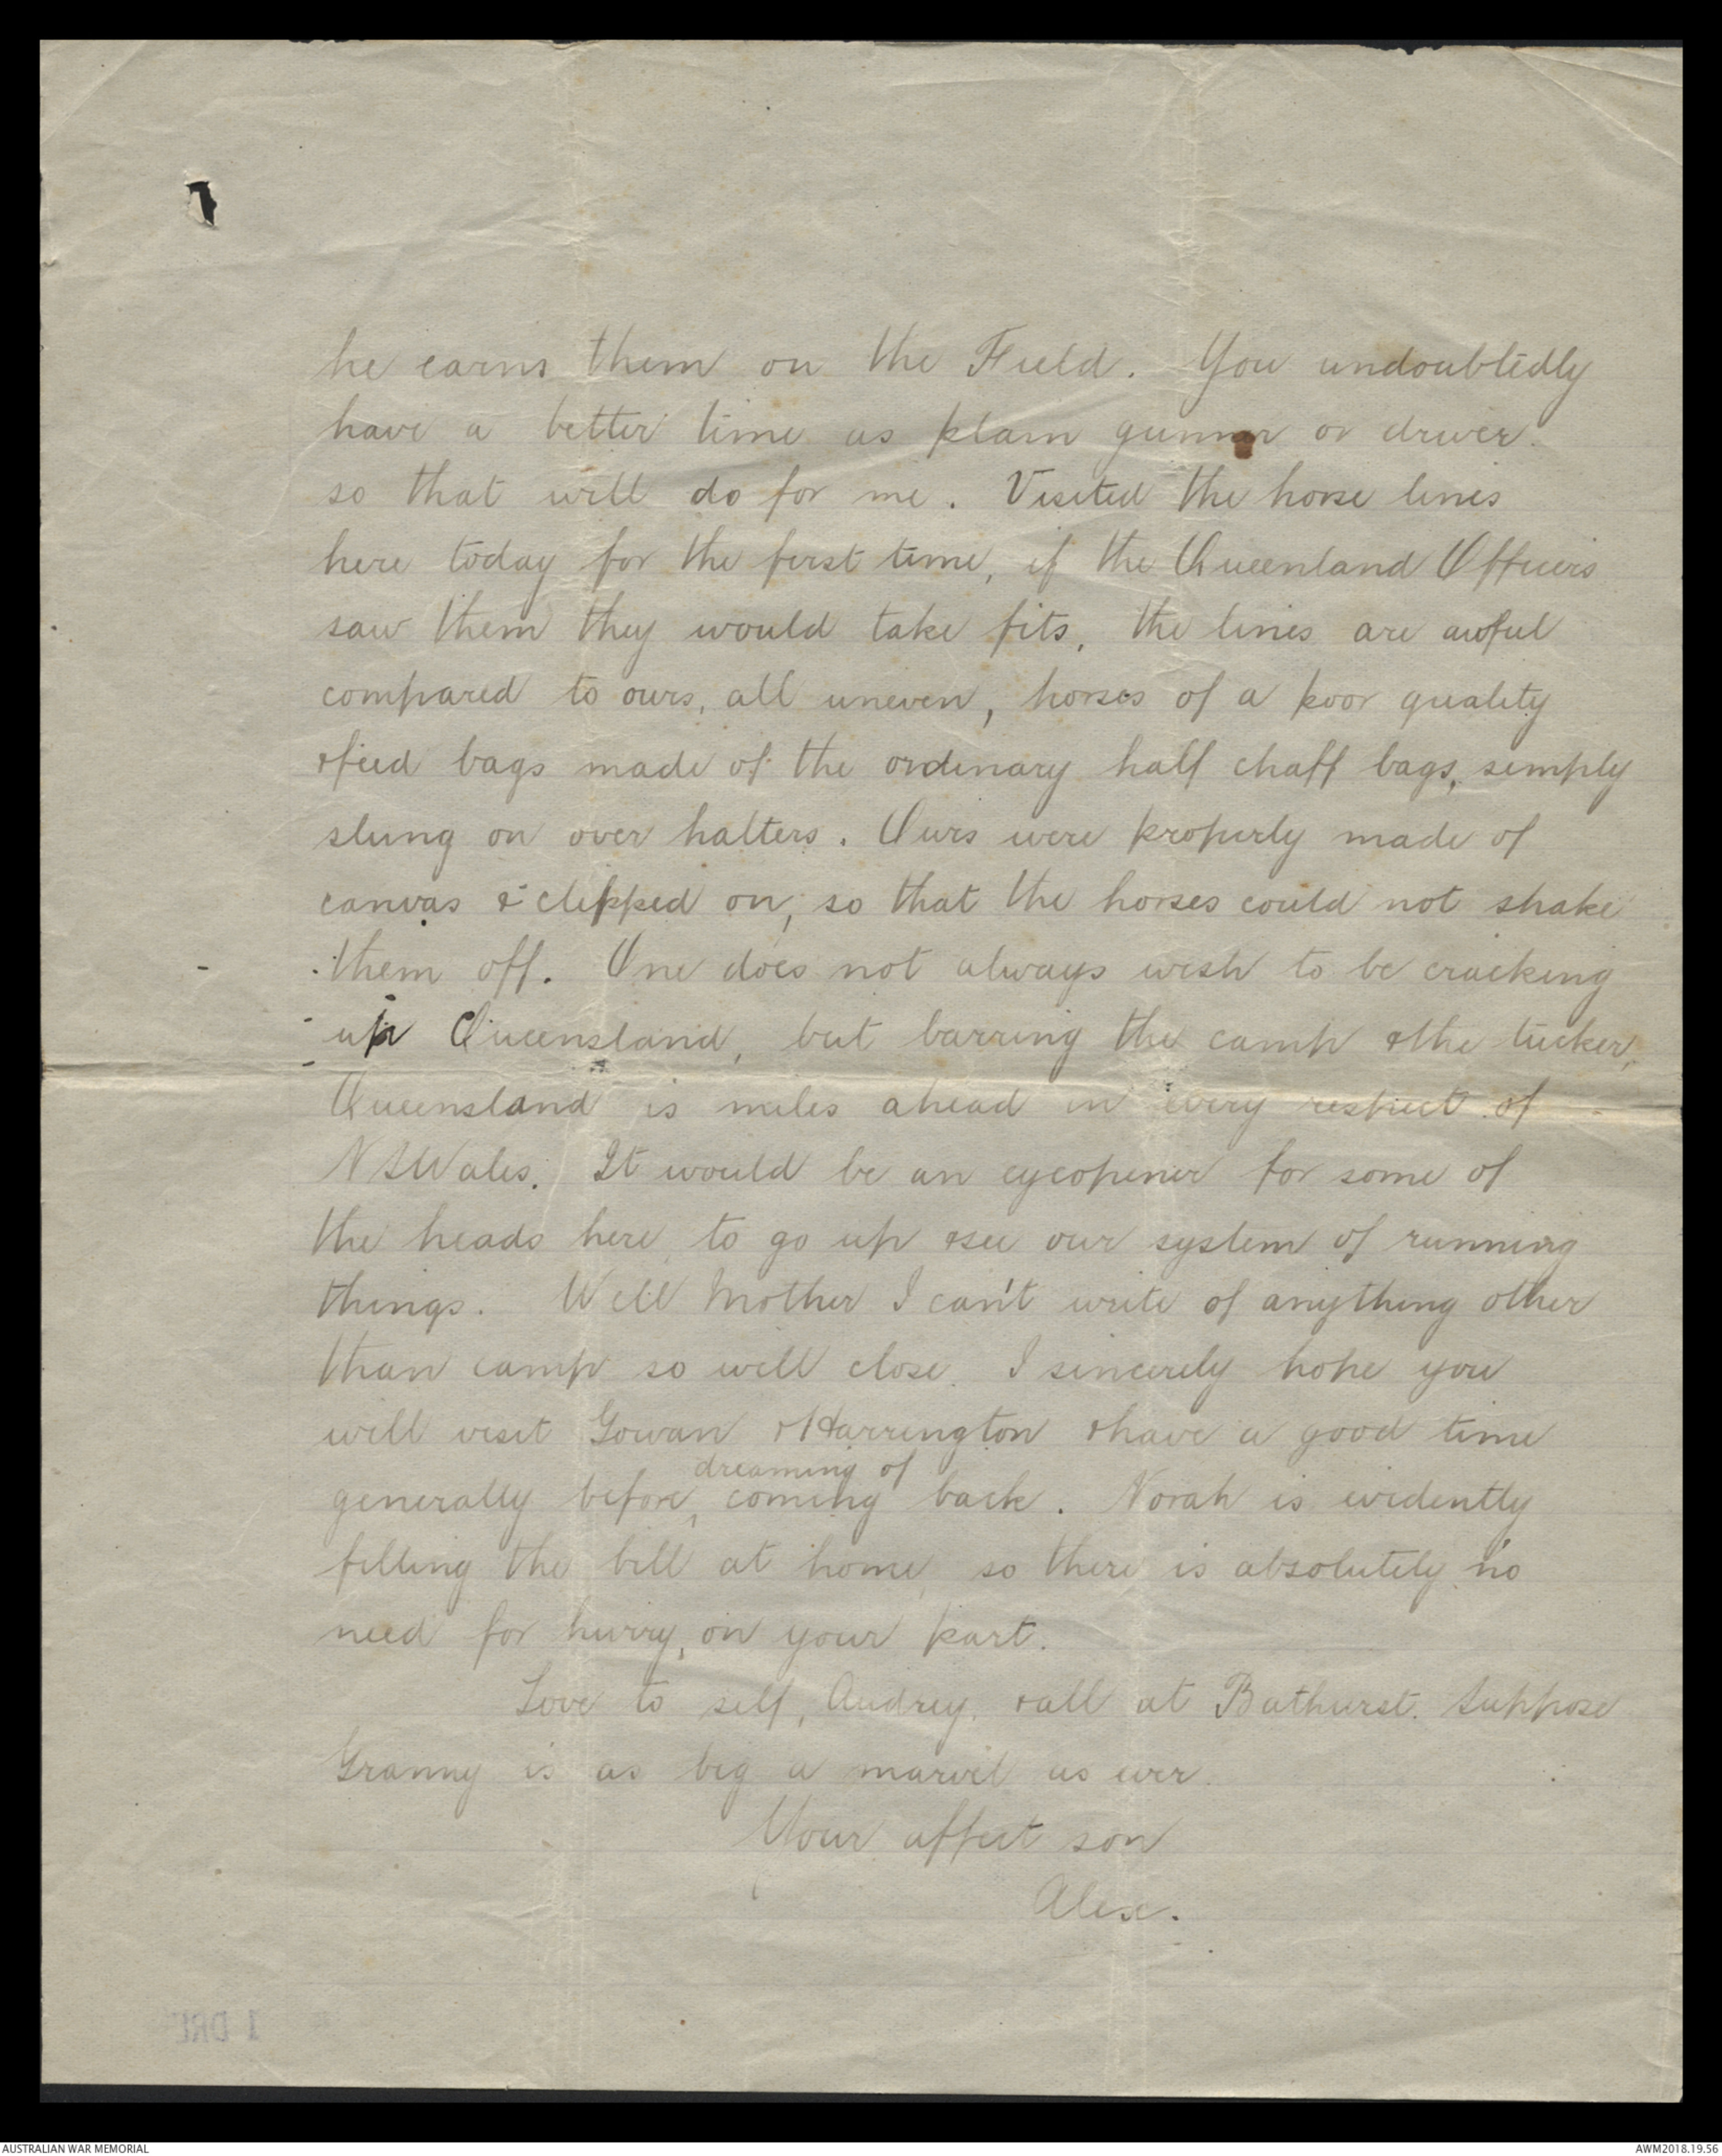 he earns them on the Field. You undoubtedly
have a better time as plain gunner or driver.
so that will do for me. Visited the horse lines
here today for the first time, if the Queenland Officers
saw them they would take fits, the lines are awful
compared to ours, all uneven, horses of a poor quality
& feed bags made of the ordinary half chaff bags, simply
slung on over halters. Ours were properly made of
canvas & clipped on, so that the horses could not shake
them off. One does not always wish to be cracking
up Queensland, but barring the camp & the tucker,
Queensland is miles ahead in every respect of
NSWales. It would be an eyeopener for some of
the heads here to go up & see our system of running
things. Well Mother I can't write of anything other
than camp so will close. I sincerely hope you
will visit Gowan & Harrington & have a good time
dreaming of
generally before, coming back. Norah is evidently
filling the bill at home, so there is absolutely no
need for hurry, on your part.
Love to self, Audrey, & all at Bathurst. Suppose
Granny is as big a marvel as ever.
Your affect son
Alex.
1 DRL
AUSTRALIAN WAR MEMORIAL
AWM2018.19.56